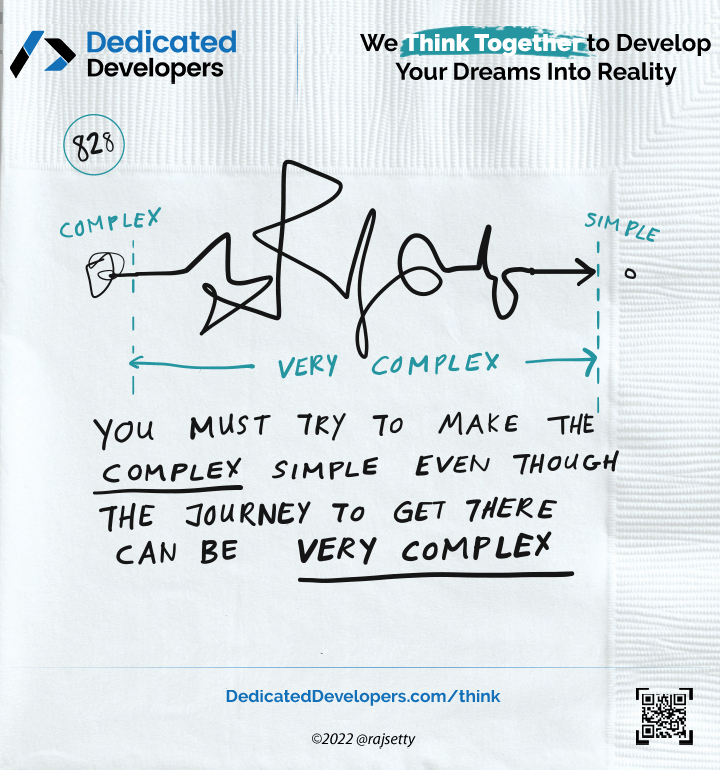 Dedicated
Developers
We Think Together to Develop
Your Dreams Into Reality
828
COMPLEX
SIMPLE
VERY COMPLEX
YOU MUST TRY TO MAKE THE
COMPLEX SIMPLE EVEN THOUGH
THE JOURNEY TO GET THERE
CAN BE VERY COMPLEX
DedicatedDevelopers.com/think
©2022 @rajsetty